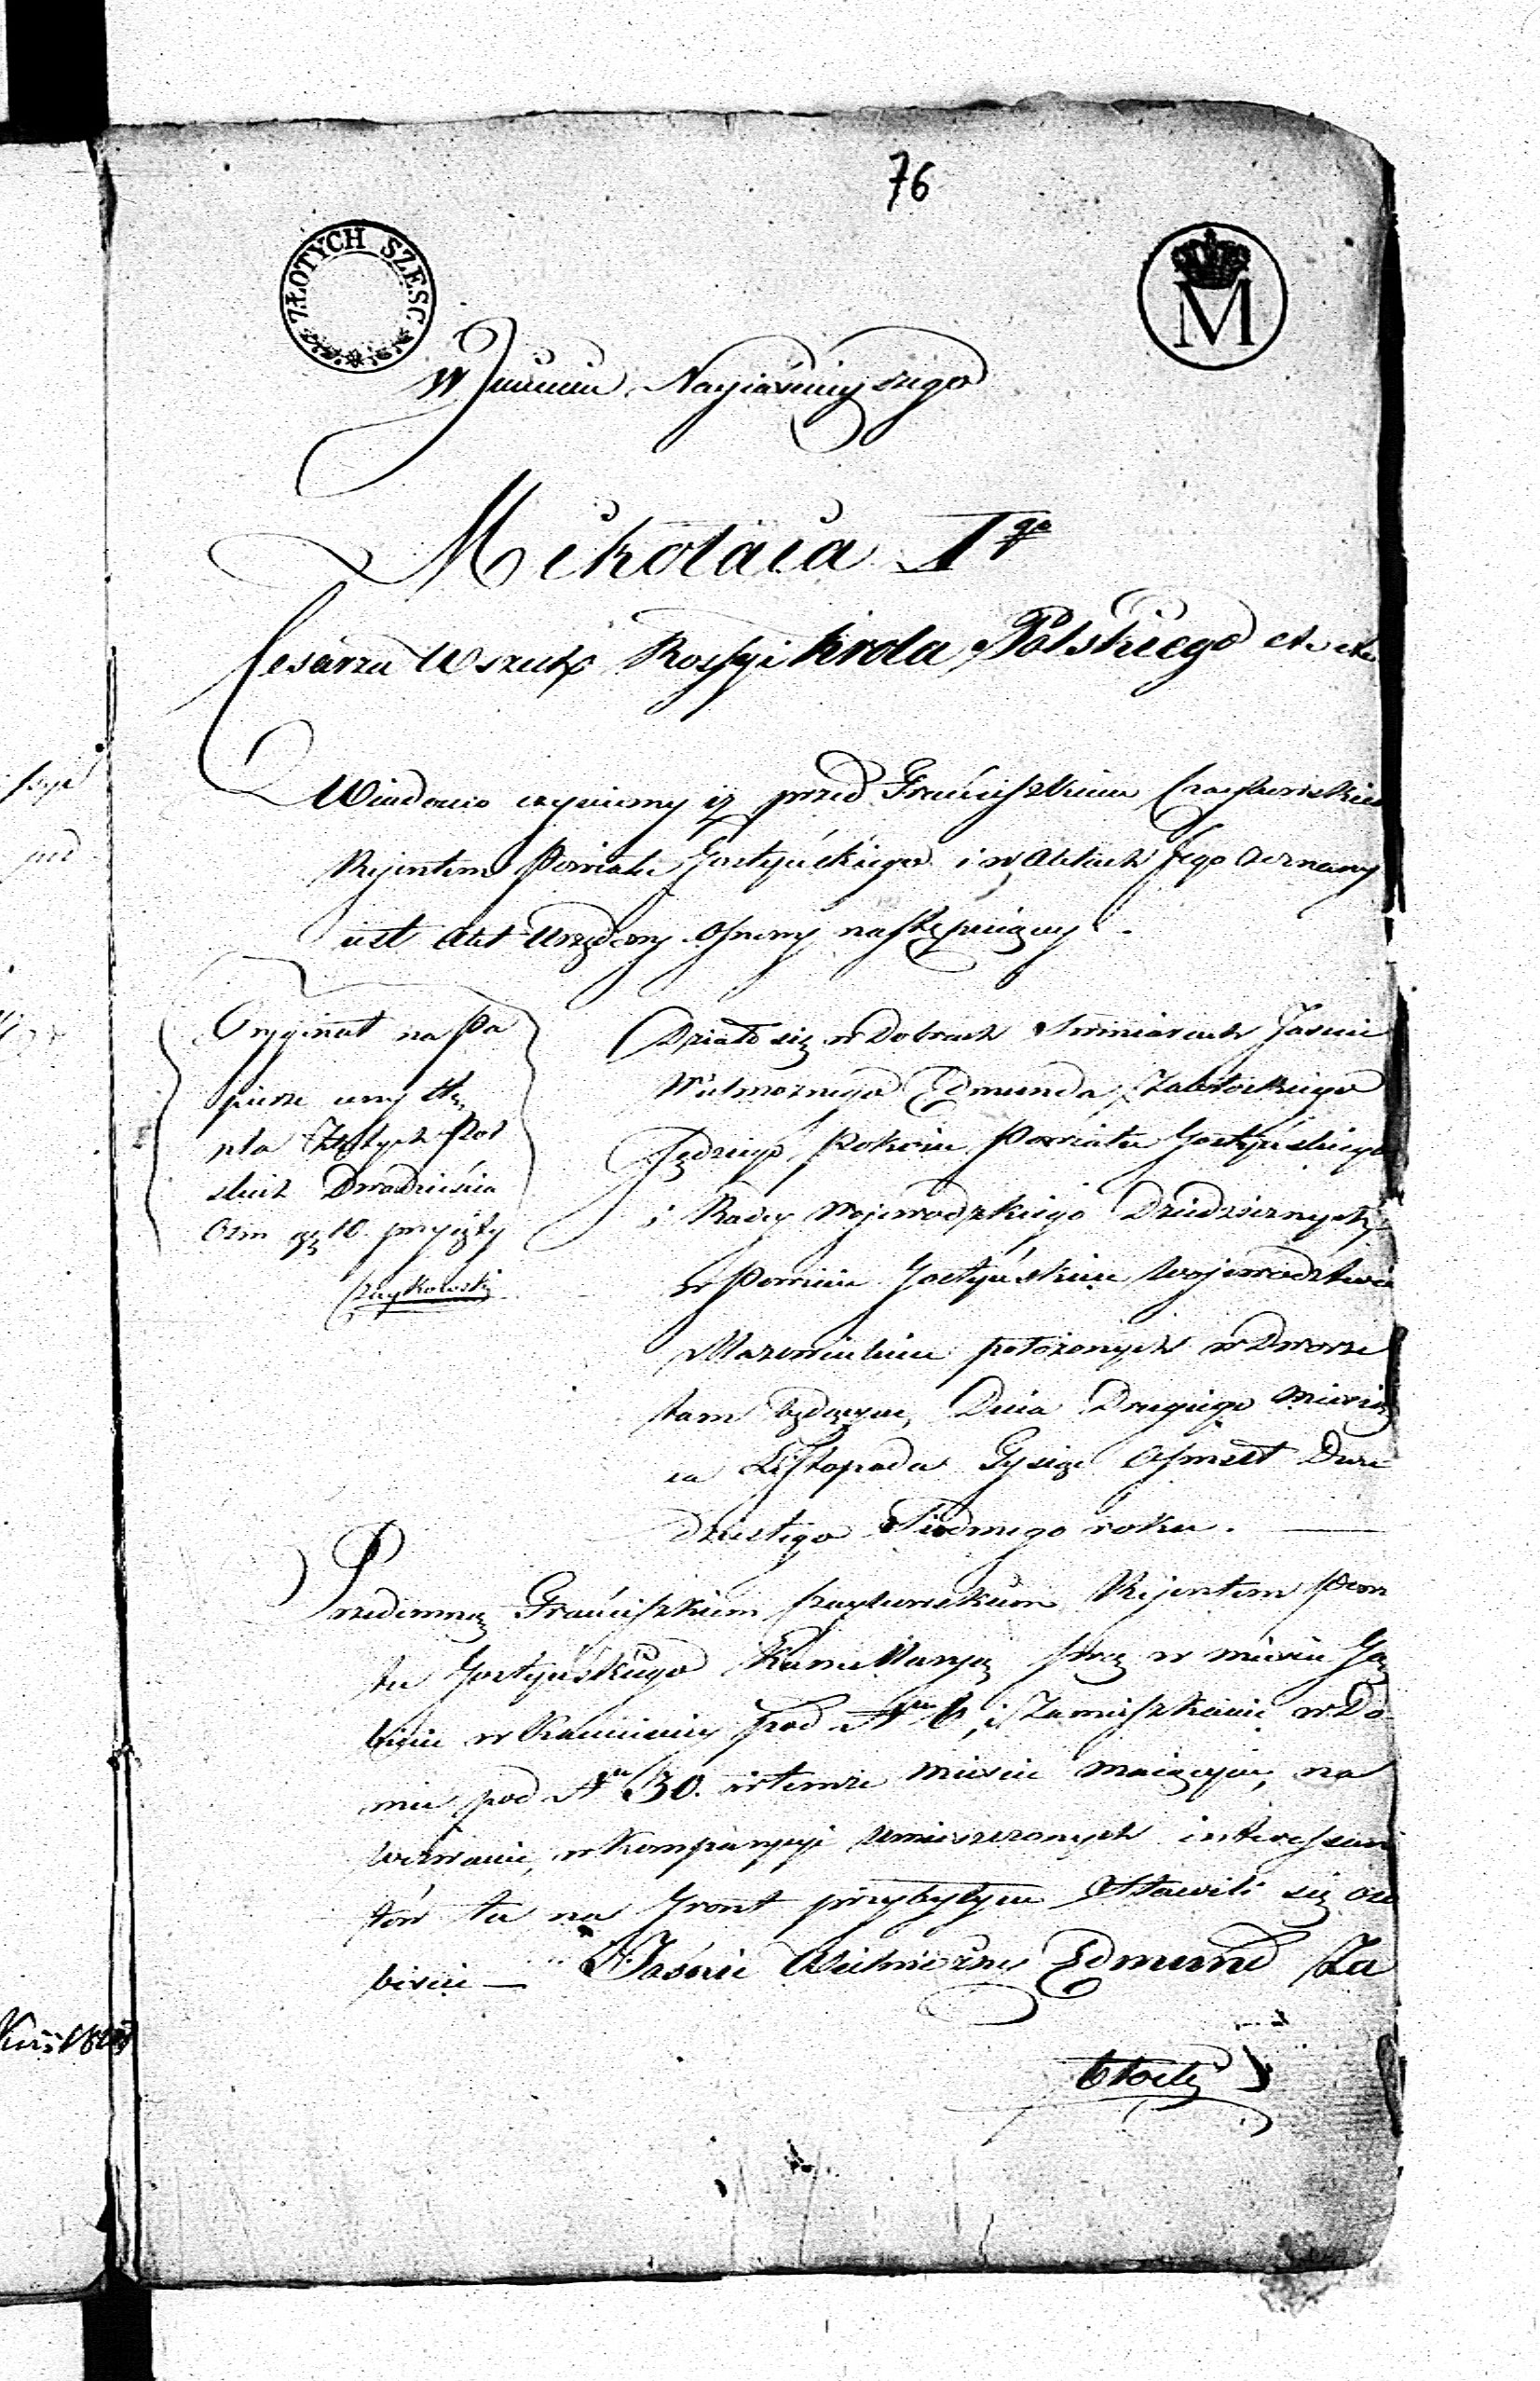 76
ZŁOTYCH SZESC
M
W Imieniu Nayiaśnieyszego
Mikołaia Igo
Cesarza Wszech Rossyi Krola Polskiego etc etc
Wiadomo czyniemy iż przed Franciszkiem
Rejentem Powiatu Gostyńskiego i w Aktach Jego zeznany
iest Akt Urzędowy Osnowy następuiącey.
Oryginał na Pa
pierze
pla Złotych Pol
skich Dwadzieścia
Osm gr 10. przyięty
Czaykowski
Działo się w Dobrach Sominiarach Jasnie
Wielmożnego Edmunda Zabłockiego
Sędziego Pokoiu Powiatu Gostyńskiego
i Radcy Wojewodzkiego Dziedzicznych,
w Powiecie Gostyńskim Wojewodztwie
Mazowieckim położonych w Dworze
tam będącym, Dnia Drugiego Miesią
ca Listopada Tysiąc Osmset Dwu
dziestego Siodmego roku.
Przedemną Franciszkiem Rejentem Powia
tu Gostyńskiego Kancellaryą swą w mieście Gą
binie w Kamienicy pod Nrem 6, i Zamieszkanie w Do
mu pod Nrem 30. w temże Mieście maiącym, na
wezwanie, w Kompanyji umieszczonych interessan
tów tu na Gront przybyłym Stawili się oso
biście — Jaśnie Wielmożny Edmund Za
błocki